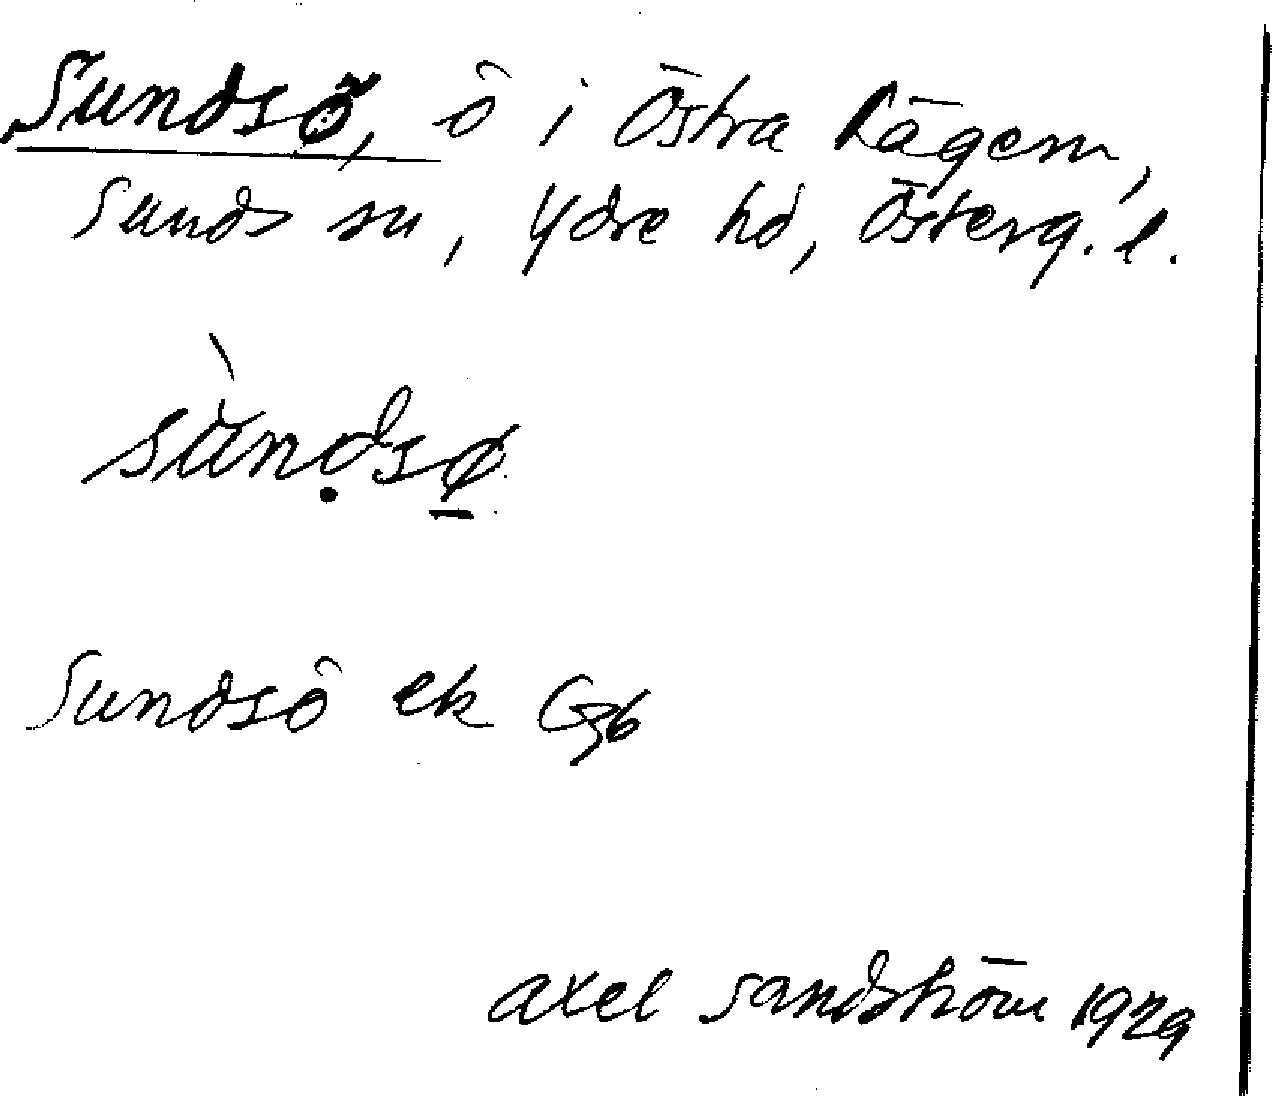 Sundsö, ö i Östra Lägern,
Sunds sn, Ydre hd, Österg. l.
sùndsø
Sundsö ek G36
Axel Sandström 1929